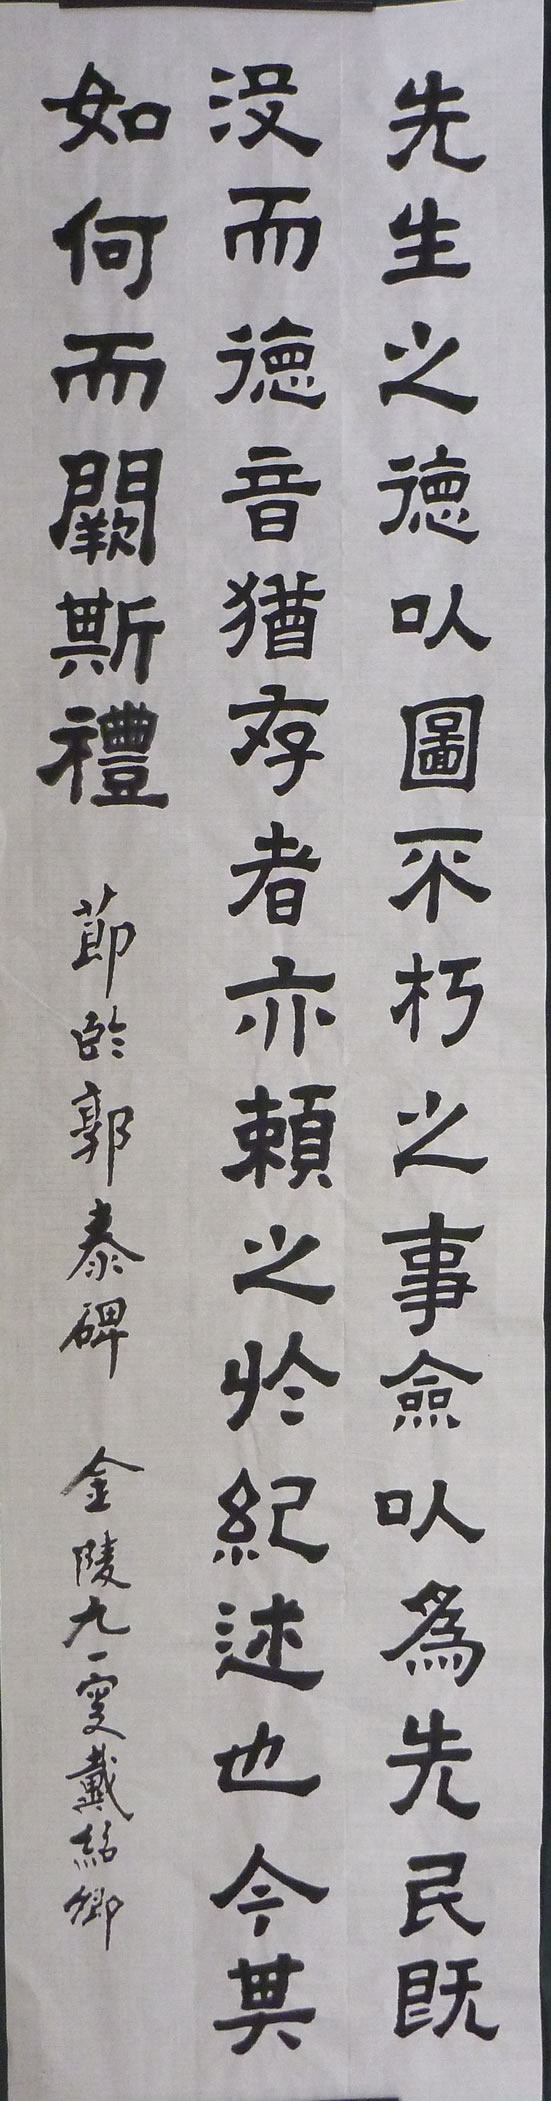 先生之德以圖不朽之事僉以為先民既
没而德音猶存者亦賴之於紀述也今其
如何而闕斯禮
節臨郭泰碑 金陵九一叟戴紹卿